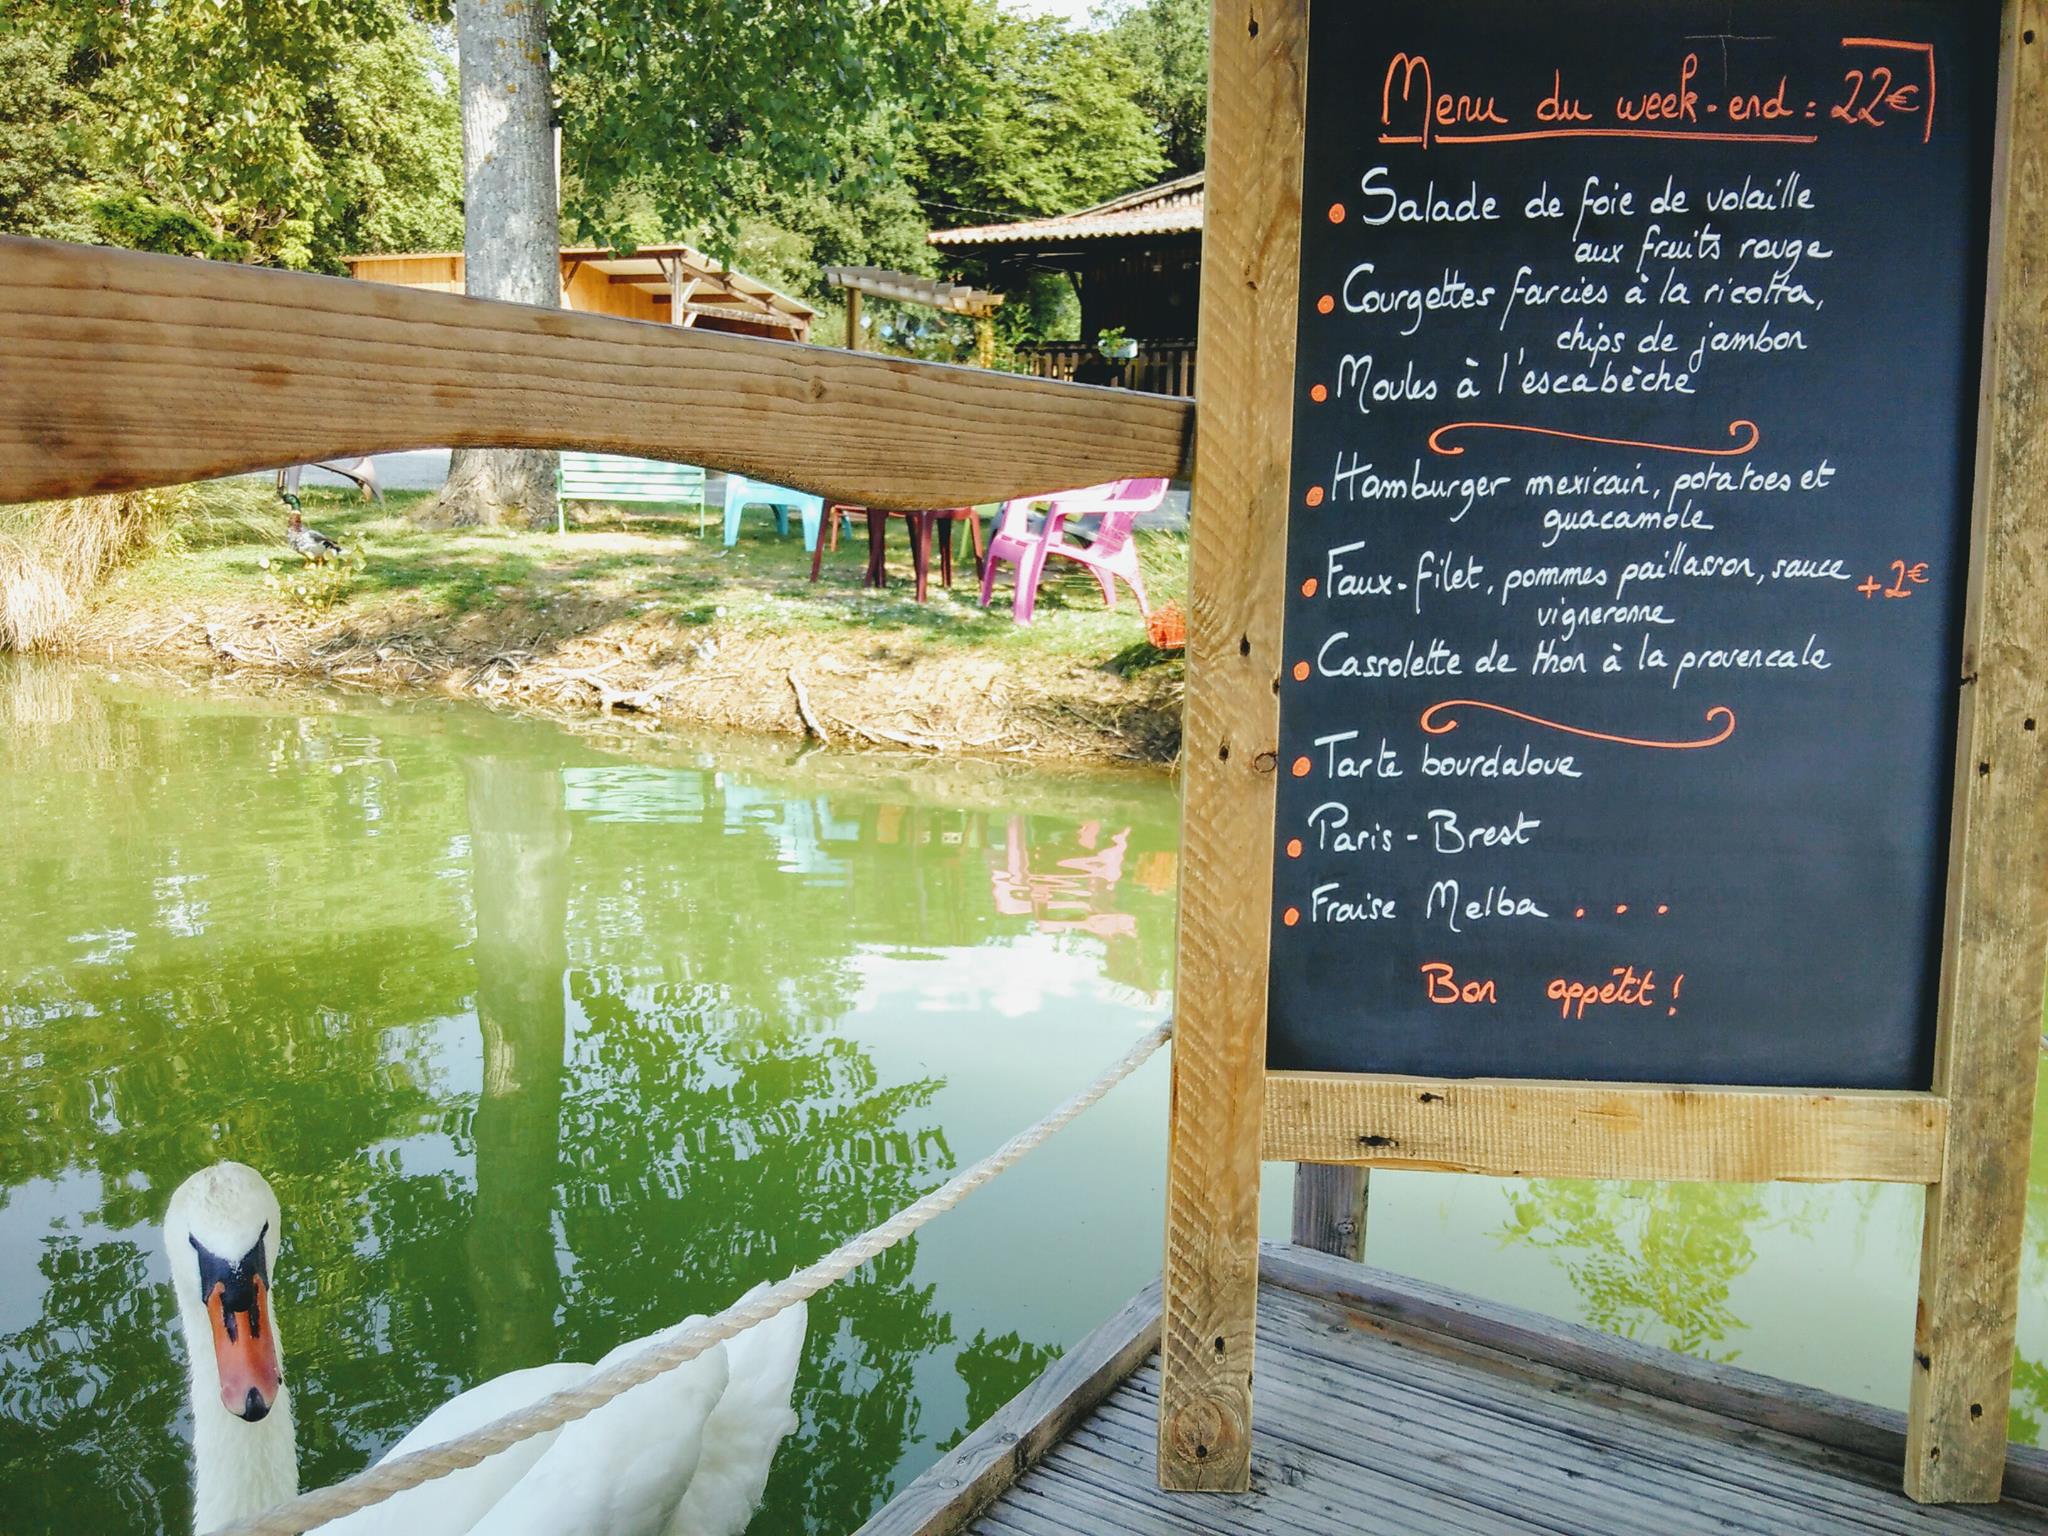 Menu du week-end : 22€
• Salade de foie de volaille
aux fruits rouge
• Courgettes farcies à la ricotta,
chips de jambon
• Moules à l'escabèche
• Hamburger mexicain, potatoes et
guacamole
• Faux-filet, pommes paillasson, sauce +2€
vigneronne
• Cassolette de thon à la provencale
• Tarte bourdaloue
• Paris-Brest
• Fraise Melba . . .
Bon appétit !